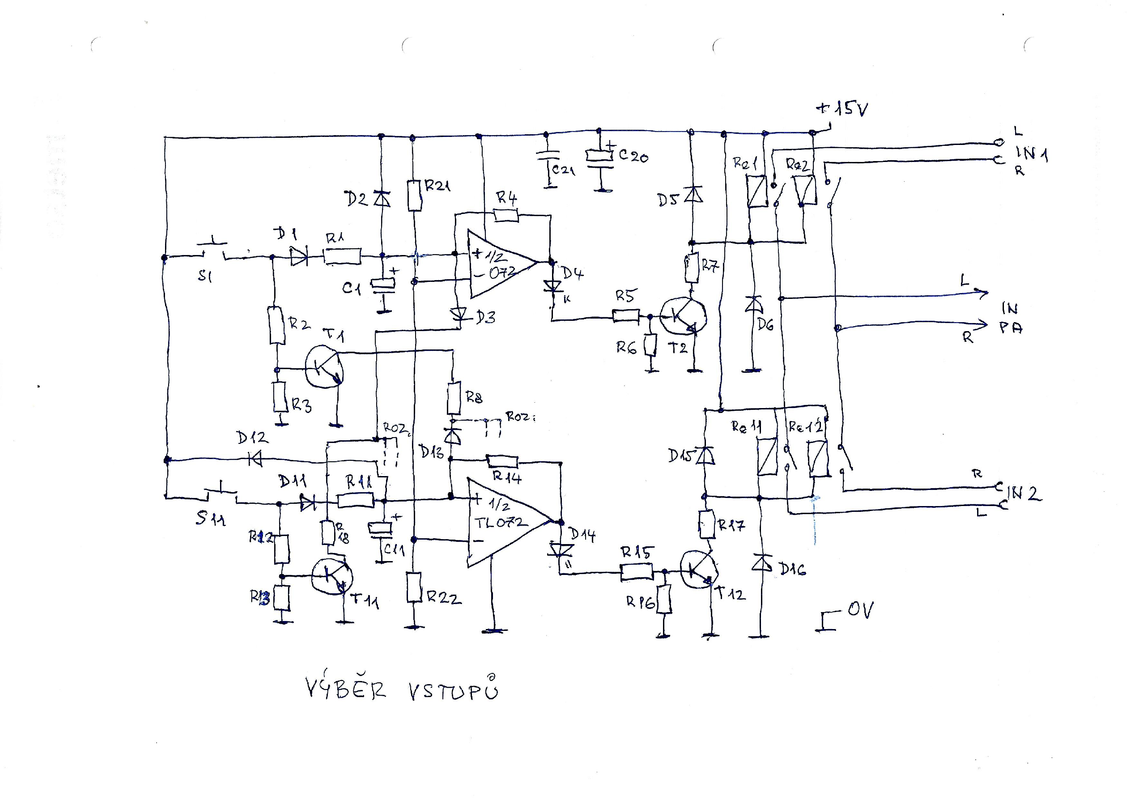 +15V
L
IN1
R
Re1
Re2
C21
C20
D2
R21
R4
D5
D1
R1
S1
C1
+
+
1/2
072
−
D4
K
D3
R7
R5
R6
T2
D6
L
IN
PA
R
R2
T1
R3
R8
ROZ.
ROZ.
D12
D13
Re11
Re12
D15
R14
D11
R11
S11
+
C11
+
1/2
TL072
−
R
IN2
L
R12
R18
R17
D14
R13
T11
R22
R15
R16
T12
D16
0V
VÝBĚR VSTUPŮ